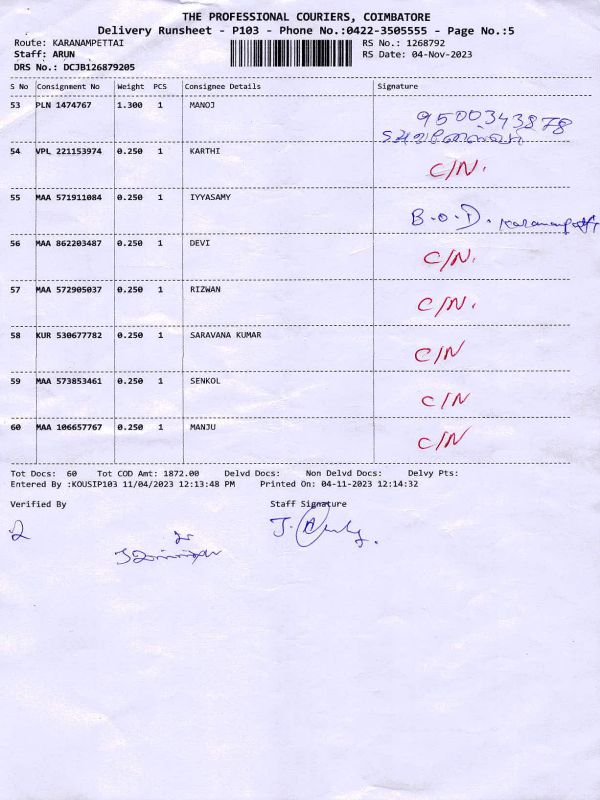 THE PROFESSIONAL COURIERS, COIMBATORE
Delivery Runsheet - P103 - Phone No.:0422-3505555 - Page No.:5
Route: KARANAMPETTAI RS No.: 1268792
Staff: ARUN RS Date: 04-Nov-2023
DRS No.: DCJB126879205
S No Consignment No Weight PCS Consignee Details Signature
53 PLN 1474767 1.300 1 MANOJ
9500343878
54 VPL 221153974 0.250 1 KARTHI C/N.
55 MAA 571911084 0.250 1 IYYASAMY B.O.D.
56 MAA 862203487 0.250 1 DEVI C/N.
57 MAA 572905037 0.250 1 RIZWAN C/N.
58 KUR 530677782 0.250 1 SARAVANA KUMAR C/N
59 MAA 573853461 0.250 1 SENKOL C/N
60 MAA 106657767 0.250 1 MANJU C/N
Tot Docs: 60 Tot COD Amt: 1872.00 Delvd Docs: Non Delvd Docs: Delvy Pts:
Entered By :KOUSIP103 11/04/2023 12:13:48 PM Printed On: 04-11-2023 12:14:32
Verified By Staff Signature